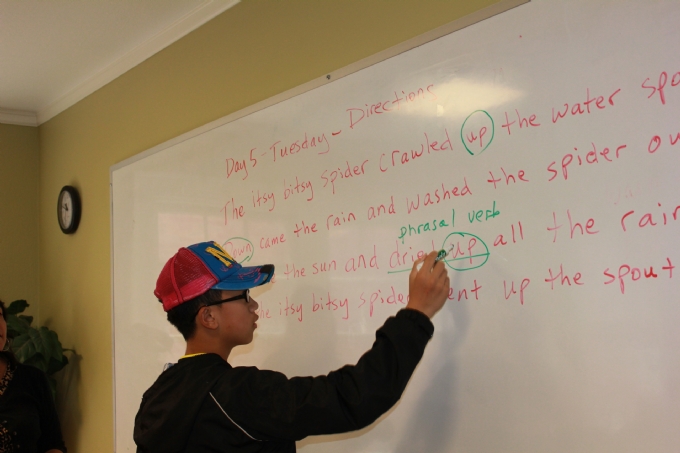 Day 5 - Tuesday - Directions
The itsy bitsy spider crawled up the water spo
Down came the rain and washed the spider ou
phrasal verb
the sun and dried up all the rain
itsy bitsy spider went up the spout
N